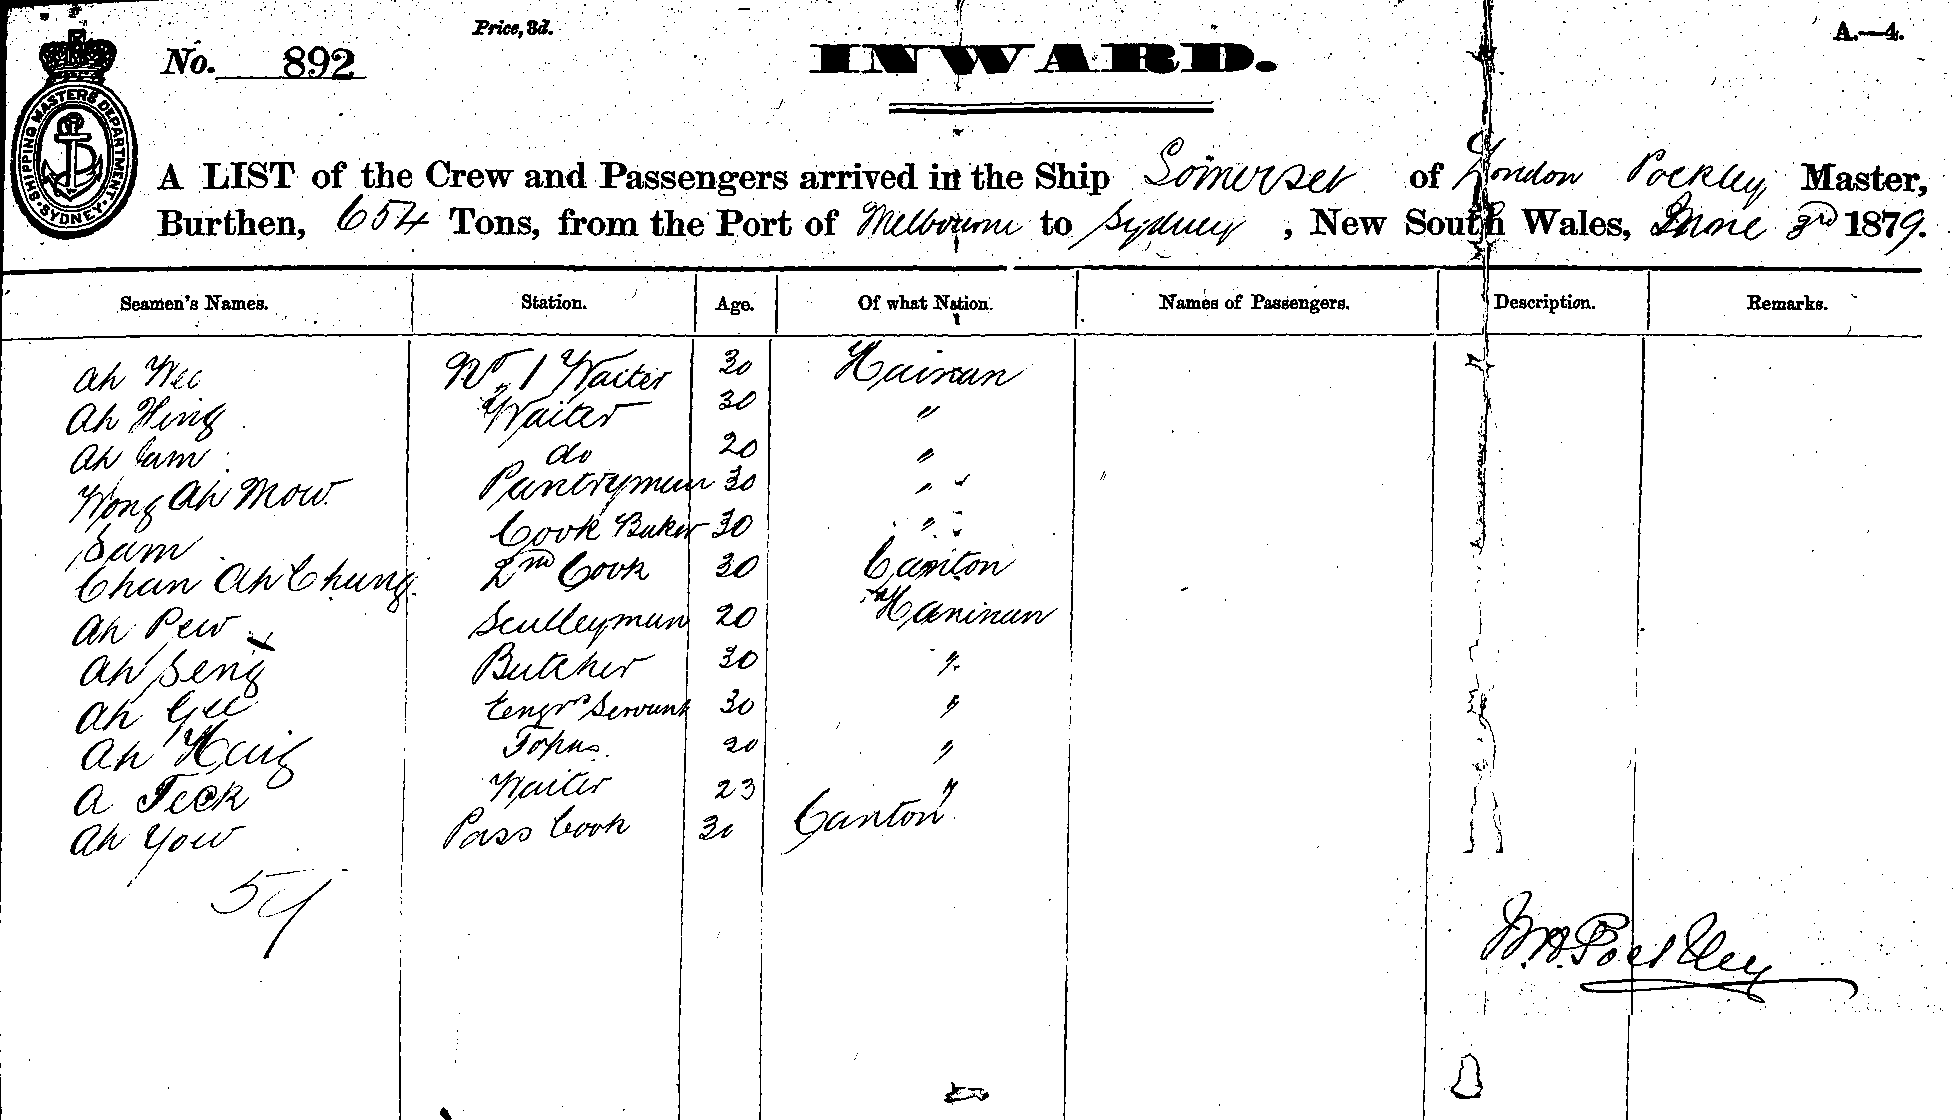 Price, 3d.
A.—4.
No. 892
INWARD.
SHIPPING MASTERS DEPARTMENT SYDNEY
A LIST of the Crew and Passengers arrived in the Ship Somerset of London Pockley Master,
Burthen, 654 Tons, from the Port of Melbourne to Sydney, New South Wales, June 3rd 1879.
Seamen's Names. Station. Age. Of what Nation. Names of Passengers. Description. Remarks.
Ah Wee No 1 Waiter 30 Hainan
Ah Hing Waiter 30 "
Ah Sam do 20 "
Wong Ah Mow. Pantryman 30 "
Sam Cook Baker 30 "
Chan Ah Chung. 2nd Cook 30 Canton
Ah Pew Sculleyman 20 Haninan
Ah Seng Butcher 30 "
Ah Gee Engrs Servant 30 "
Ah Haig Topas 20 "
A Teck Waiter 23 "
Ah Yow Pass Cook 30 Canton
59
Pockley